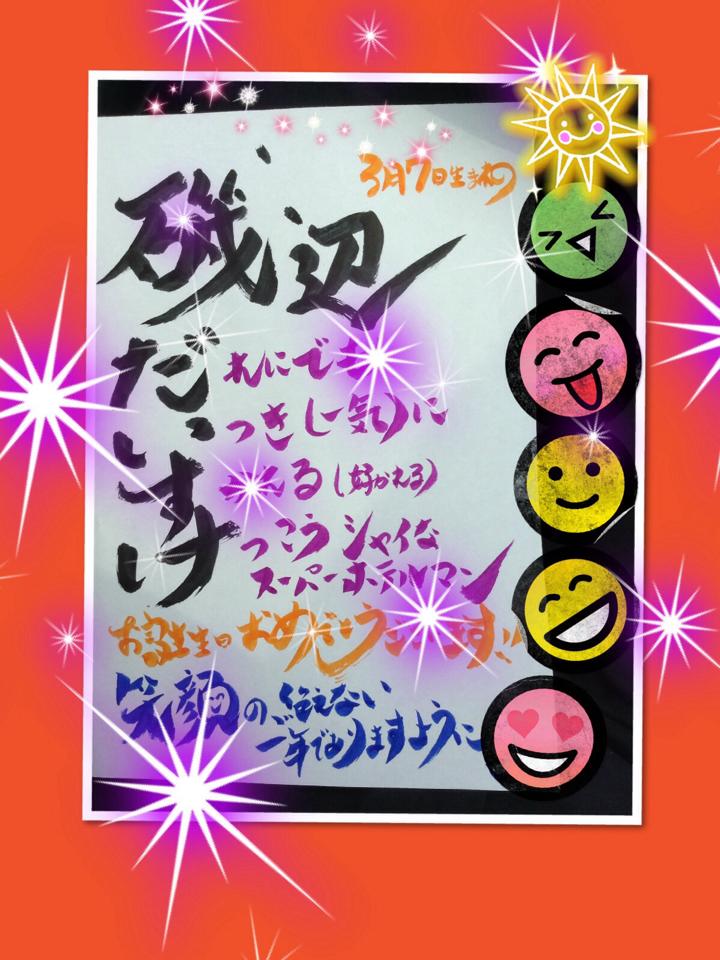 3月7日生まれの
磯辺
だいすけ
れにでも
っき(一気)に
かれる(好かれる)
っこう シャイな
スーパーホテルマン
お誕生日おめでとうございます!!
笑顔の絶えない
一年でありますように